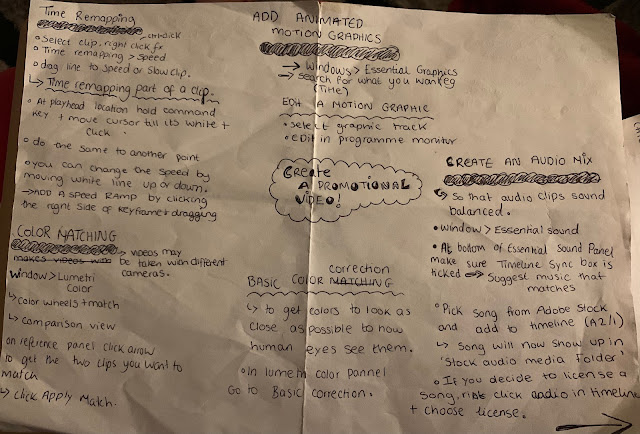 Time Remapping
ctrl+click
o Select clip, right click fx
o Time remapping > Speed
o drag line to Speed or Slow clip.
↳ Time remapping part of a clip.
o At playhead location hold command
key + move cursor till its white +
click
o do the same to another point
o you can change the speed by
moving white line up or down.
→ ADD A SPEED RAMP by clicking
the right side of Keyframe + dragging
COLOR MATCHING
→ videos may
makes videos
be taken with different
cameras.
Window > Lumetri
Color
↳ Color wheels + match
↳ comparison view
on reference panel click arrow
to get the two clips you want to
match
↳ click Apply Match.
ADD ANIMATED
MOTION GRAPHICS
→ Windows > Essential Graphics
→ Search for what you want eg
(Title)
EDIT A MOTION GRAPHIC
• Select graphic track
• Edit in programme monitor
Create
A PROMOTIONAL
VIDEO!
correction
BASIC COLOR MATCHING
↳ to get colors to look as
close as possible to how
human eyes see them.
o In lumetri color pannel
Go to Basic correction.
CREATE AN AUDIO MIX
↳ So that audio clips sound
balanced.
• Window > Essential sound
• At bottom of Essential Sound Panel
make sure Timeline Sync box is
ticked → Suggest music that
matches
o Pick song from Adobe Stock
and add to timeline (A2/1)
↳ Song will now show up in
'Stock audio media Folder'
o If you decide to license a
song, click audio in timeline
+ choose license.
→